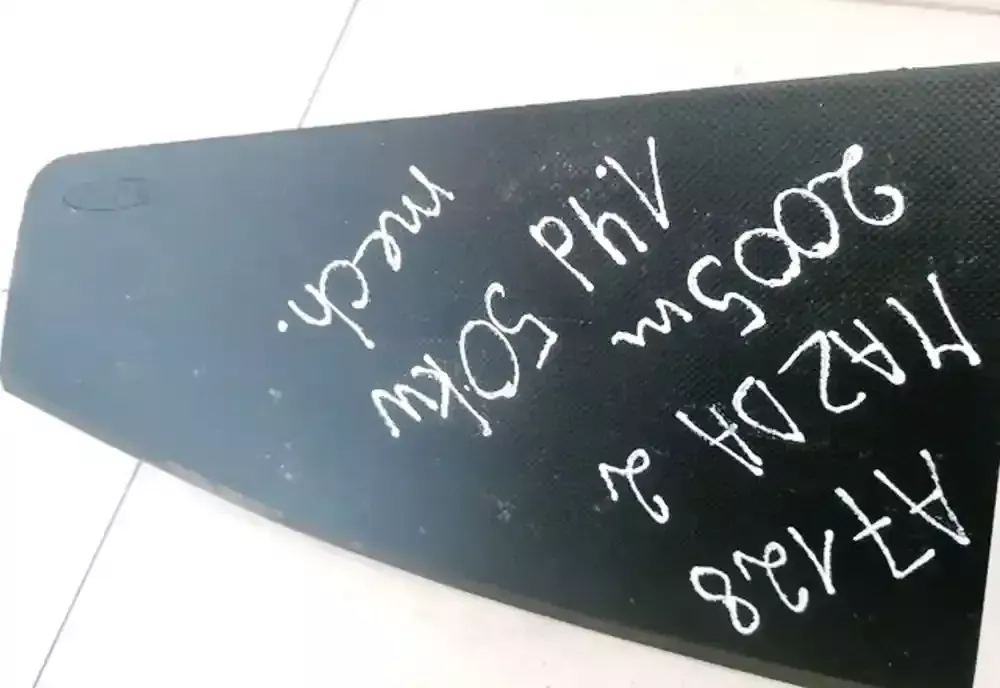 A7128
MAZDA 2
2005m
1.4d
50kw
mech.